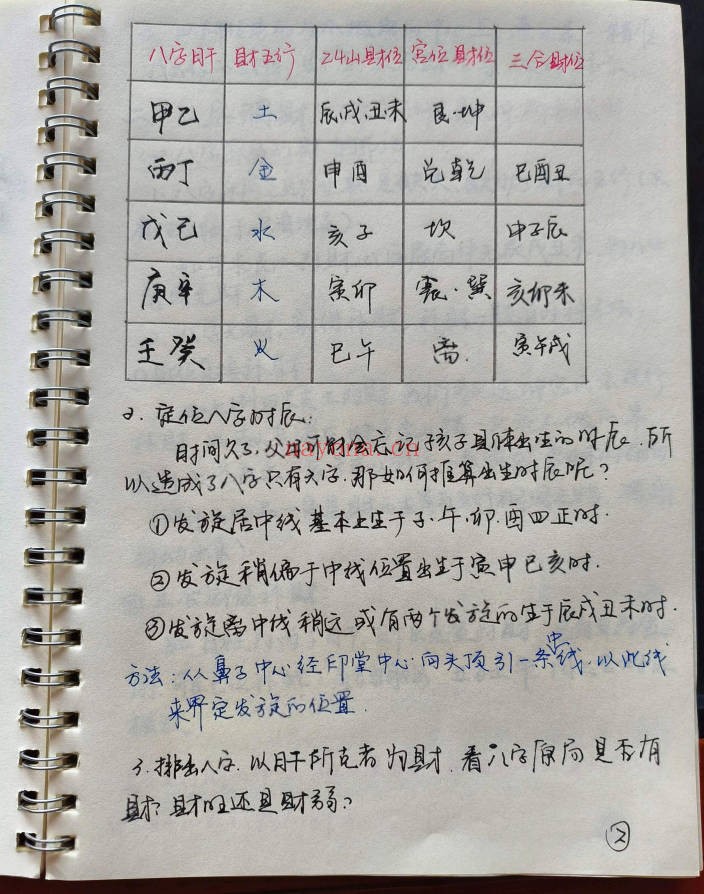 八字日干 財五行 24山財位 宫位財位 三合財位
甲乙 土 辰.戌.丑.未 艮.坤
丙丁 金 申酉 兑乾 巳酉丑
戊己 水 亥子 坎 申子辰
庚辛 木 寅卯 震.巽 亥卯未
壬癸 火 巳午 离. 寅午戌
2. 定位八字时辰:
时间久了.父母可能会忘记孩子具体出生的时辰.所
以造成了八字只有六字.那如何推算出生时辰呢?
①发旋居中线基本上生于子.午.卯.酉四正时.
②发旋稍偏于中线位置出生于寅申巳亥时.
③发旋离中线稍远或有两个发旋的生于辰戌丑未时.
方法:从鼻子中心经印堂中心向头顶引一条中线.以此线
来界定发旋的位置.
3.排出八字.以日干所克者为財.看八字原局是否有
財?財旺还是財弱?
②